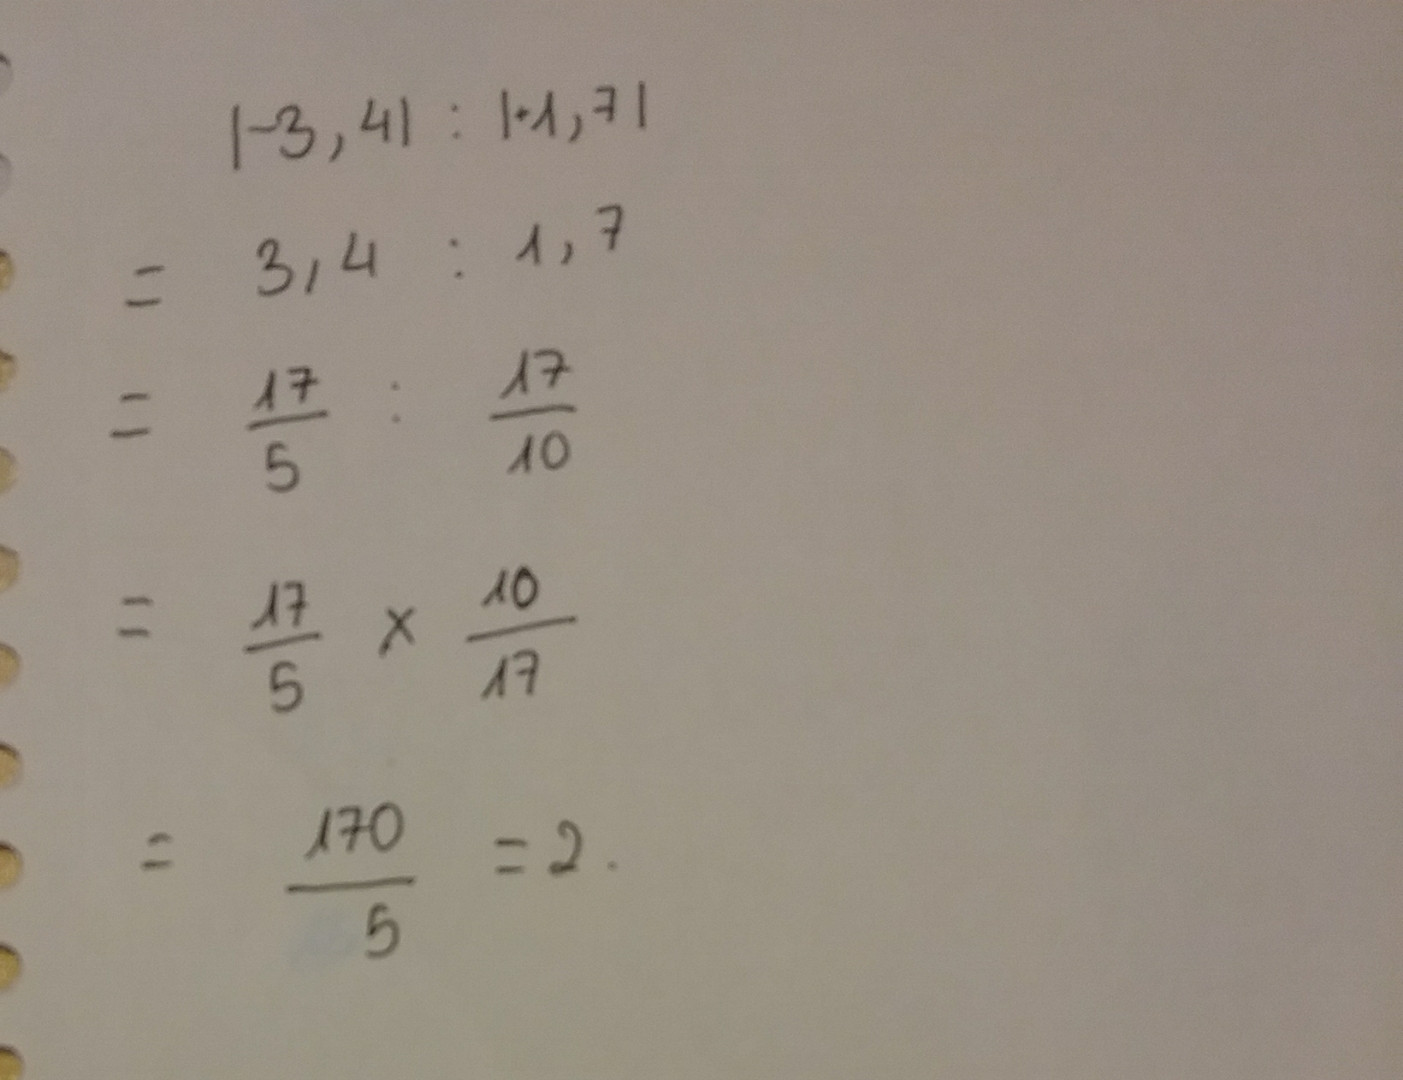 |-3,4| : |+1,7|
= 3,4 : 1,7
= 17/5 : 17/10
= 17/5 x 10/17
= 170/5 = 2.